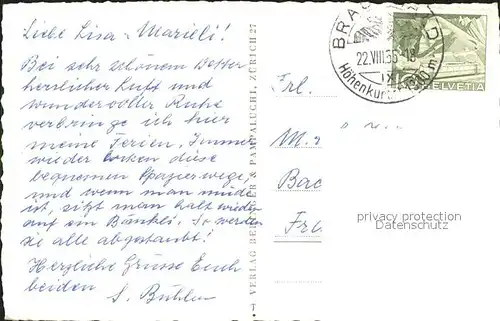 Liebe Lisa-Marieli!
Bei sehr schönem Wetter
herrlicher Luft und
wundervoller Ruhe
verbringe ich hier
meine Ferien. Immer
wieder locken diese
bequemen Spazierwege,
und wenn man müde
ist, sitzt man halt wieder
auf ein Bänkli. So werden
sie alle abgestaubt!
Herzliche Grüsse Euch
beiden
S. Bühler
VERLAG PAMPALUCHI, ZÜRICH 27
22.VIII.55-18
Höhenkur
HELVETIA
Frl.
M.
Bac
Frl
privacy protection
Datenschutz